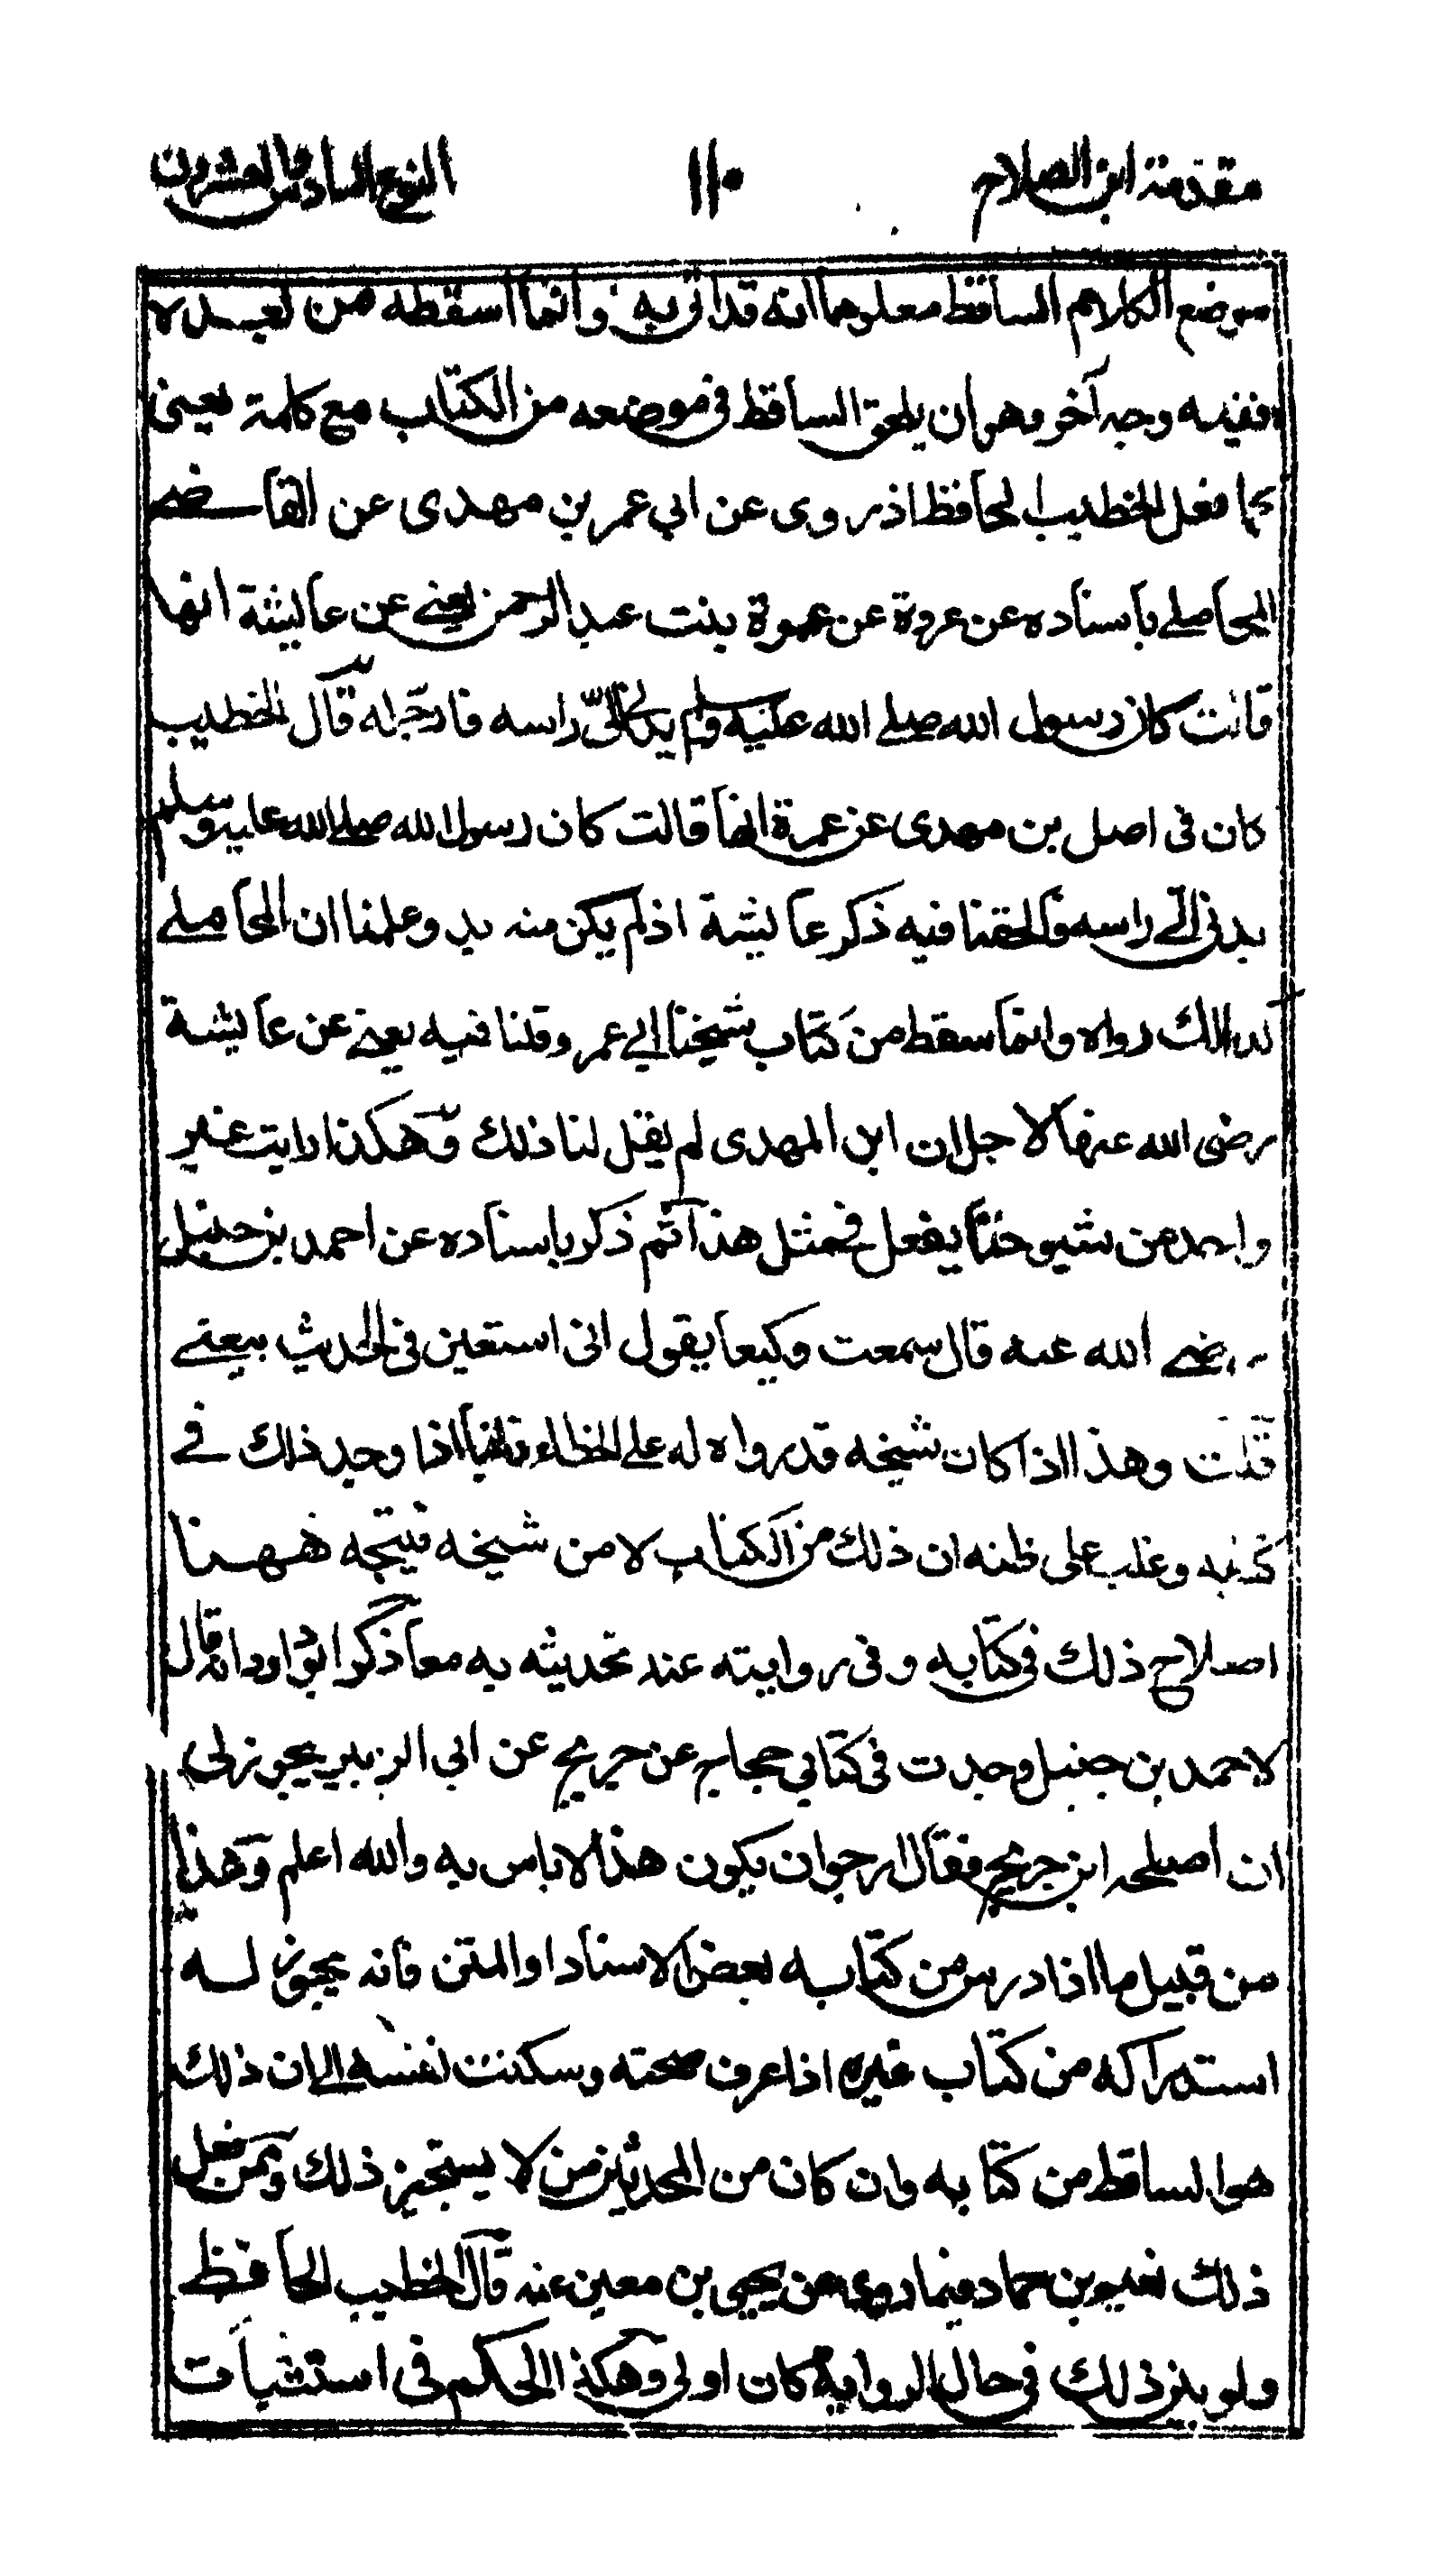 مقدمة ابن الصلاح ١١٠ النوع السادس والعشرون
موضع الكلام الساقط معلوما انه قد اتى به وانما اسقطه من بعده
ففيه وجه آخر وهو ان يلحق الساقط في موضعه من الكتاب مع كلمة يعنى
كما فعل الخطيب الحافظ اذ روى عن ابي عمر بن مهدى عن القاضے
المحاملے باسناده عن عروة عن عمرة بنت عبد الرحمن يعنے عن عايشة انها
قالت كان رسول الله صلے الله عليه وسلم يدنى الىّ راسه فارجّله قال الخطيب
كان فى اصل بن مهدى عن عمرة انها قالت كان رسول الله صلے الله عليه وسلم
يدنى الىّ راسه فالحقنا فيه ذكر عايشة اذ لم يكن منه بد وعلمنا ان المحاملے
كذلك رواه وانما سقط من كتاب شيخنا ابي عمر وقلنا فيه يعنے عن عايشة
رضى الله عنها لاجل ان ابن المهدى لم يقل لنا ذلك وهكذا رايت غير
واحد من شيوخنا يفعل في مثل هذا ثم ذكر باسناده عن احمد بن حنبل
رضے الله عنه قال سمعت وكيعا يقول انى استعين فى الحديث بيعنے
قلت وهذا اذا كان شيخه قد رواه له على الخطاء فاما اذا وجد ذلك فے
كتابه وغلب على ظنه ان ذلك من الكتاب لا من شيخه فيتجه ههنا
اصلاح ذلك فى كتابه وفى روايته عند تحديثه به معا ذكر ابو داود انه قال
لاحمد بن حنبل وجدت فى كتابي حجاج عن جريج عن ابي الزبير يجوز لى
ان اصلحه ابن جريج فقال ارجوان يكون هذا لا باس به والله اعلم وهذا
من قبيل ما اذا درس من كتابه بعض الاسناد او المتن فانه يجوز له
استدراكه من كتاب غيره اذا عرف صحته وسكنت نفسه الى ان ذلك
هو الساقط من كتابه وان كان من المحدثين من لا يستجيز ذلك وممن فعل
ذلك نعيم بن حماد فيما روى عن يحيى بن معين عنه قال الخطيب الحافظ
ولو بين ذلك فى حال الرواية كان اولى وهكذا الحكم فى استثبات